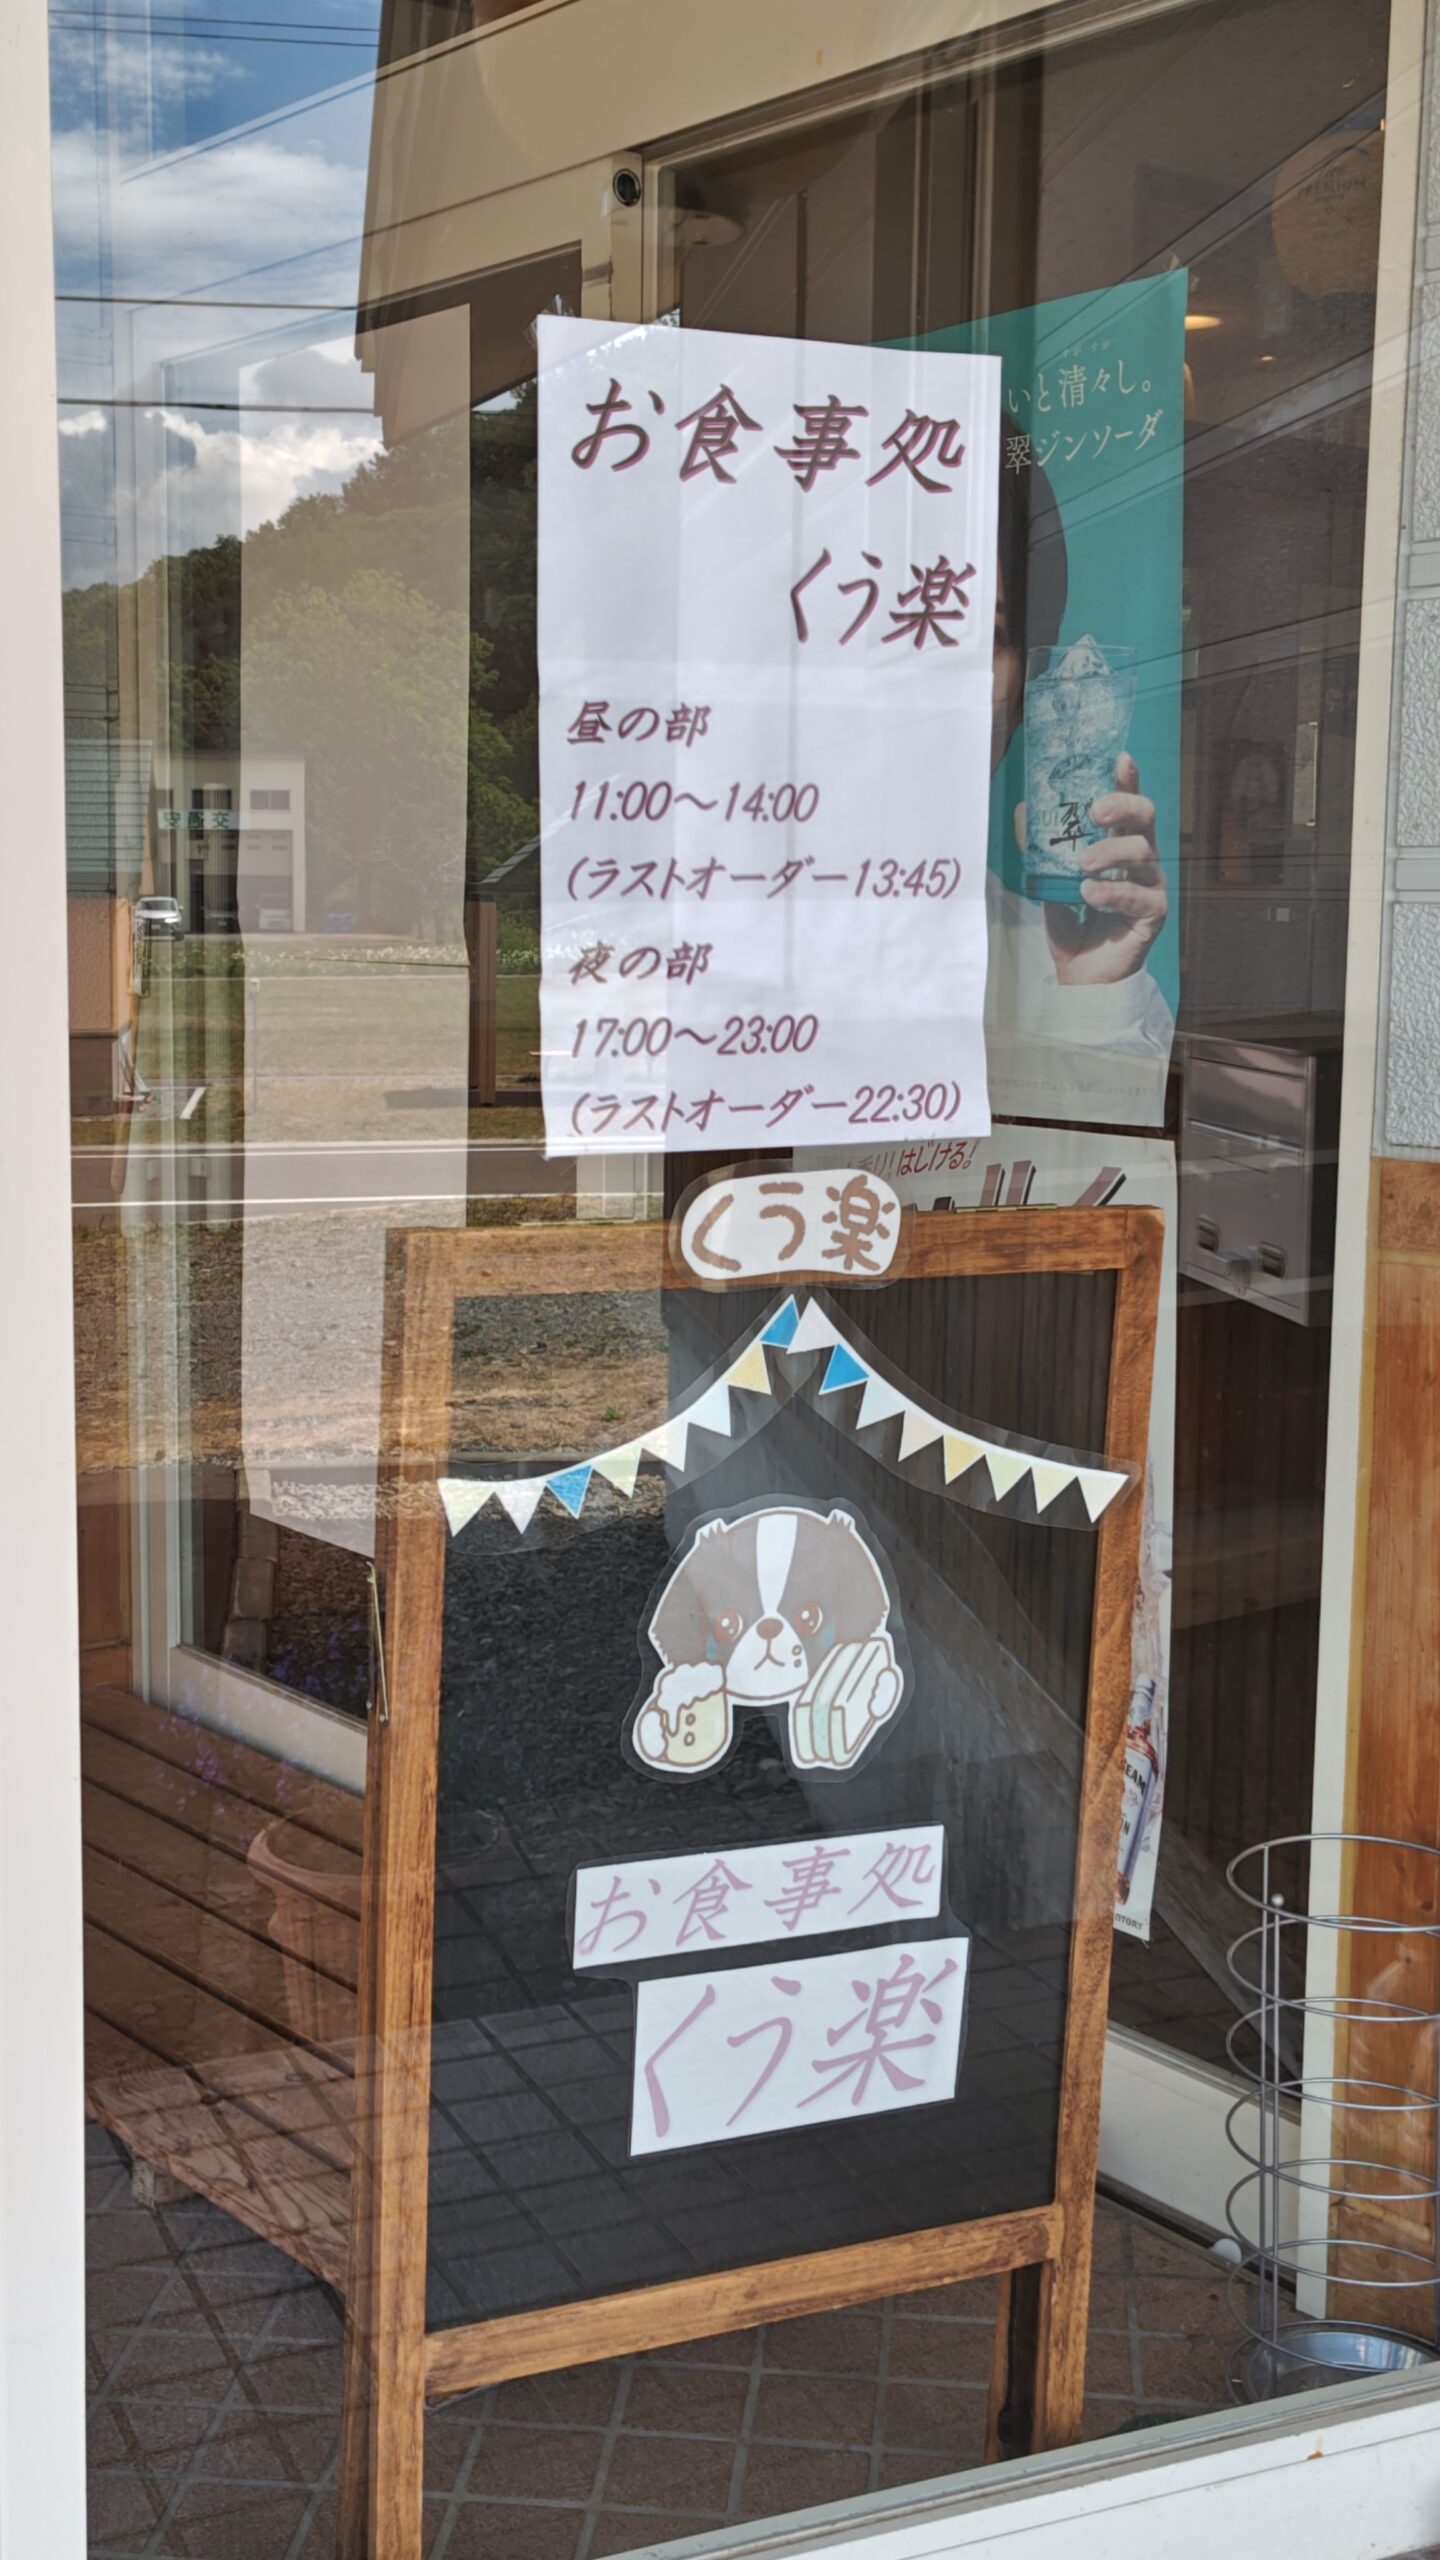 お食事処
くう楽
昼の部
11:00～14:00
(ラストオーダー13:45)
夜の部
17:00～23:00
(ラストオーダー22:30)
すがすが
いと清々し。
翠ジンソーダ
翠
はじける!
くう楽
お食事処
くう楽
PREMIUM